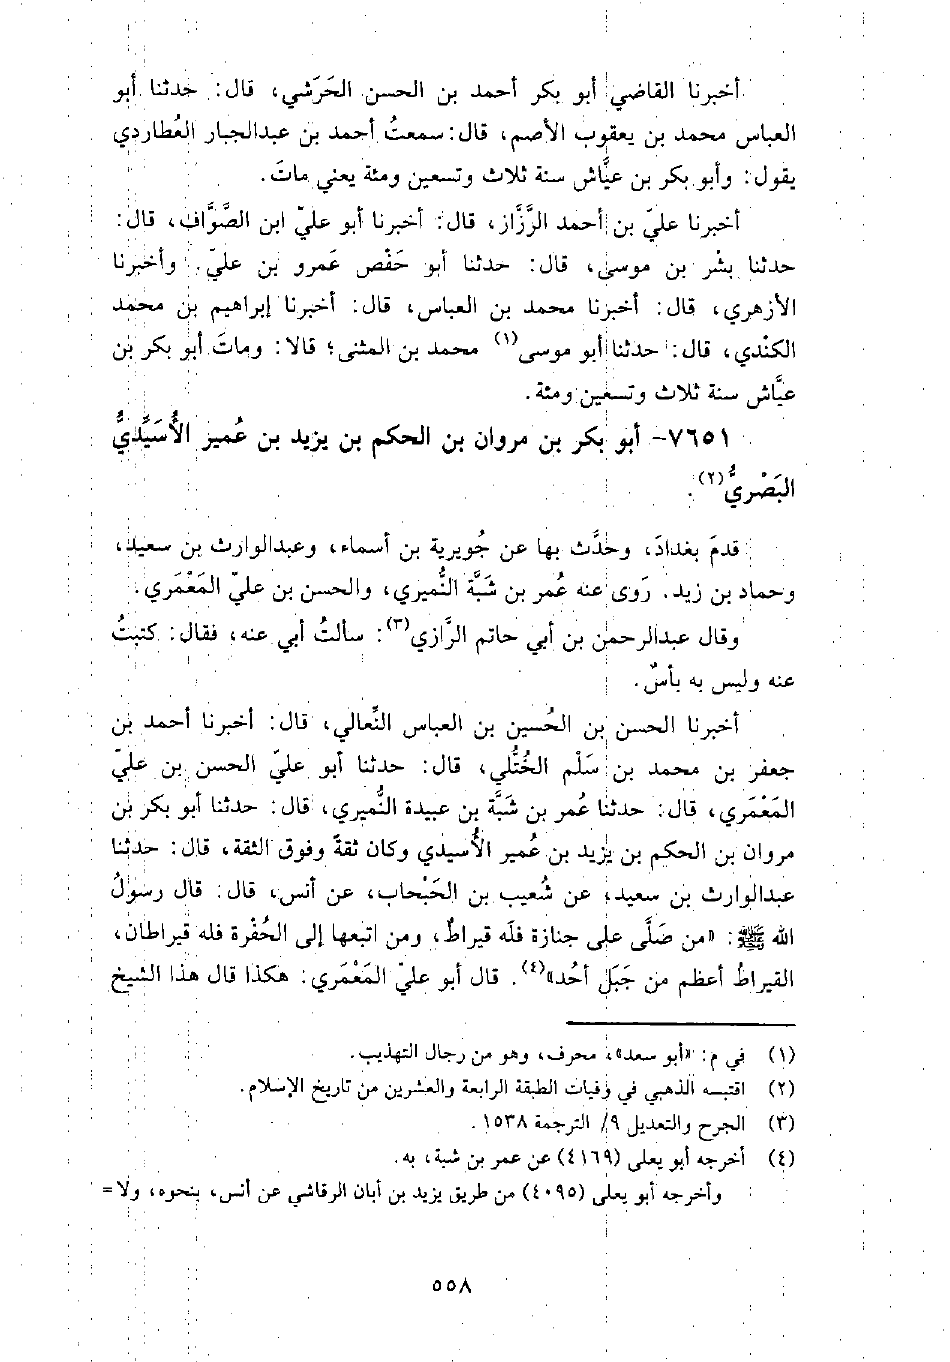 أخبرنا القاضي أبو بكر أحمد بن الحسن الحَرَشي، قال: حدثنا أبو
العباس محمد بن يعقوب الأصم، قال: سمعتُ أحمد بن عبدالجبار العُطاردي
يقول: وأبو بكر بن عيَّاش سنة ثلاث وتسعين ومئة يعني ماتَ.
أخبرنا عليّ بن أحمد الرَّزَّاز، قال: أخبرنا أبو عليّ ابن الصَّوَّاف، قال:
حدثنا بِشْر بن موسى، قال: حدثنا أبو حَفْص عَمرو بن عليّ. وأخبرنا
الأزهري، قال: أخبرنا محمد بن العباس، قال: أخبرنا إبراهيم بن محمد
الكنْدي، قال: حدثنا أبو موسى(١) محمد بن المثنى؛ قالا: وماتَ أبو بكر بن
عيَّاش سنة ثلاث وتسعين ومئة.
٧٦٥١- أبو بكر بن مروان بن الحكم بن يزيد بن عُمير الأُسَيِّديُّ
البَصْريُّ(٢).
قدمَ بغدادَ، وحدَّث بها عن جُويرية بن أسماء، وعبدالوارث بن سعيد،
وحماد بن زيد. رَوى عنه عُمر بن شَبَّة النُّميري، والحسن بن عليّ المَعْمَري.
وقال عبدالرحمن بن أبي حاتم الرَّازي(٣): سألتُ أبي عنه، فقال: كتبتُ
عنه وليس به بأسٌ.
أخبرنا الحسن بن الحُسين بن العباس النِّعالي، قال: أخبرنا أحمد بن
جعفر بن محمد بن سَلْم الخُتُّلي، قال: حدثنا أبو عليّ الحسن بن عليّ
المَعْمَري، قال: حدثنا عُمر بن شَبَّة بن عبيدة النُّميري، قال: حدثنا أبو بكر بن
مروان بن الحكم بن يزيد بن عُمير الأُسيدي وكان ثقةً وفوق الثقة، قال: حدثنا
عبدالوارث بن سعيد، عن شُعيب بن الحَبْحاب، عن أنس، قال: قال رسولُ
الله ﷺ: «من صَلَّى على جنازة فله قيراطٌ، ومن اتبعها إلى الحُفْرة فله قيراطان،
القيراطُ أعظم من جَبَل أُحُد»(٤). قال أبو عليّ المَعْمَري: هكذا قال هذا الشيخ
(١) في م: «أبو سعد»، محرف، وهو من رجال التهذيب.
(٢) اقتبسه الذهبي في وفيات الطبقة الرابعة والعشرين من تاريخ الإسلام.
(٣) الجرح والتعديل ٩/ الترجمة ١٥٣٨.
(٤) أخرجه أبو يعلى (٤١٦٩) عن عمر بن شبة، به.
وأخرجه أبو يعلى (٤٠٩٥) من طريق يزيد بن أبان الرقاشي عن أنس، بنحوه، ولا=
٥٥٨